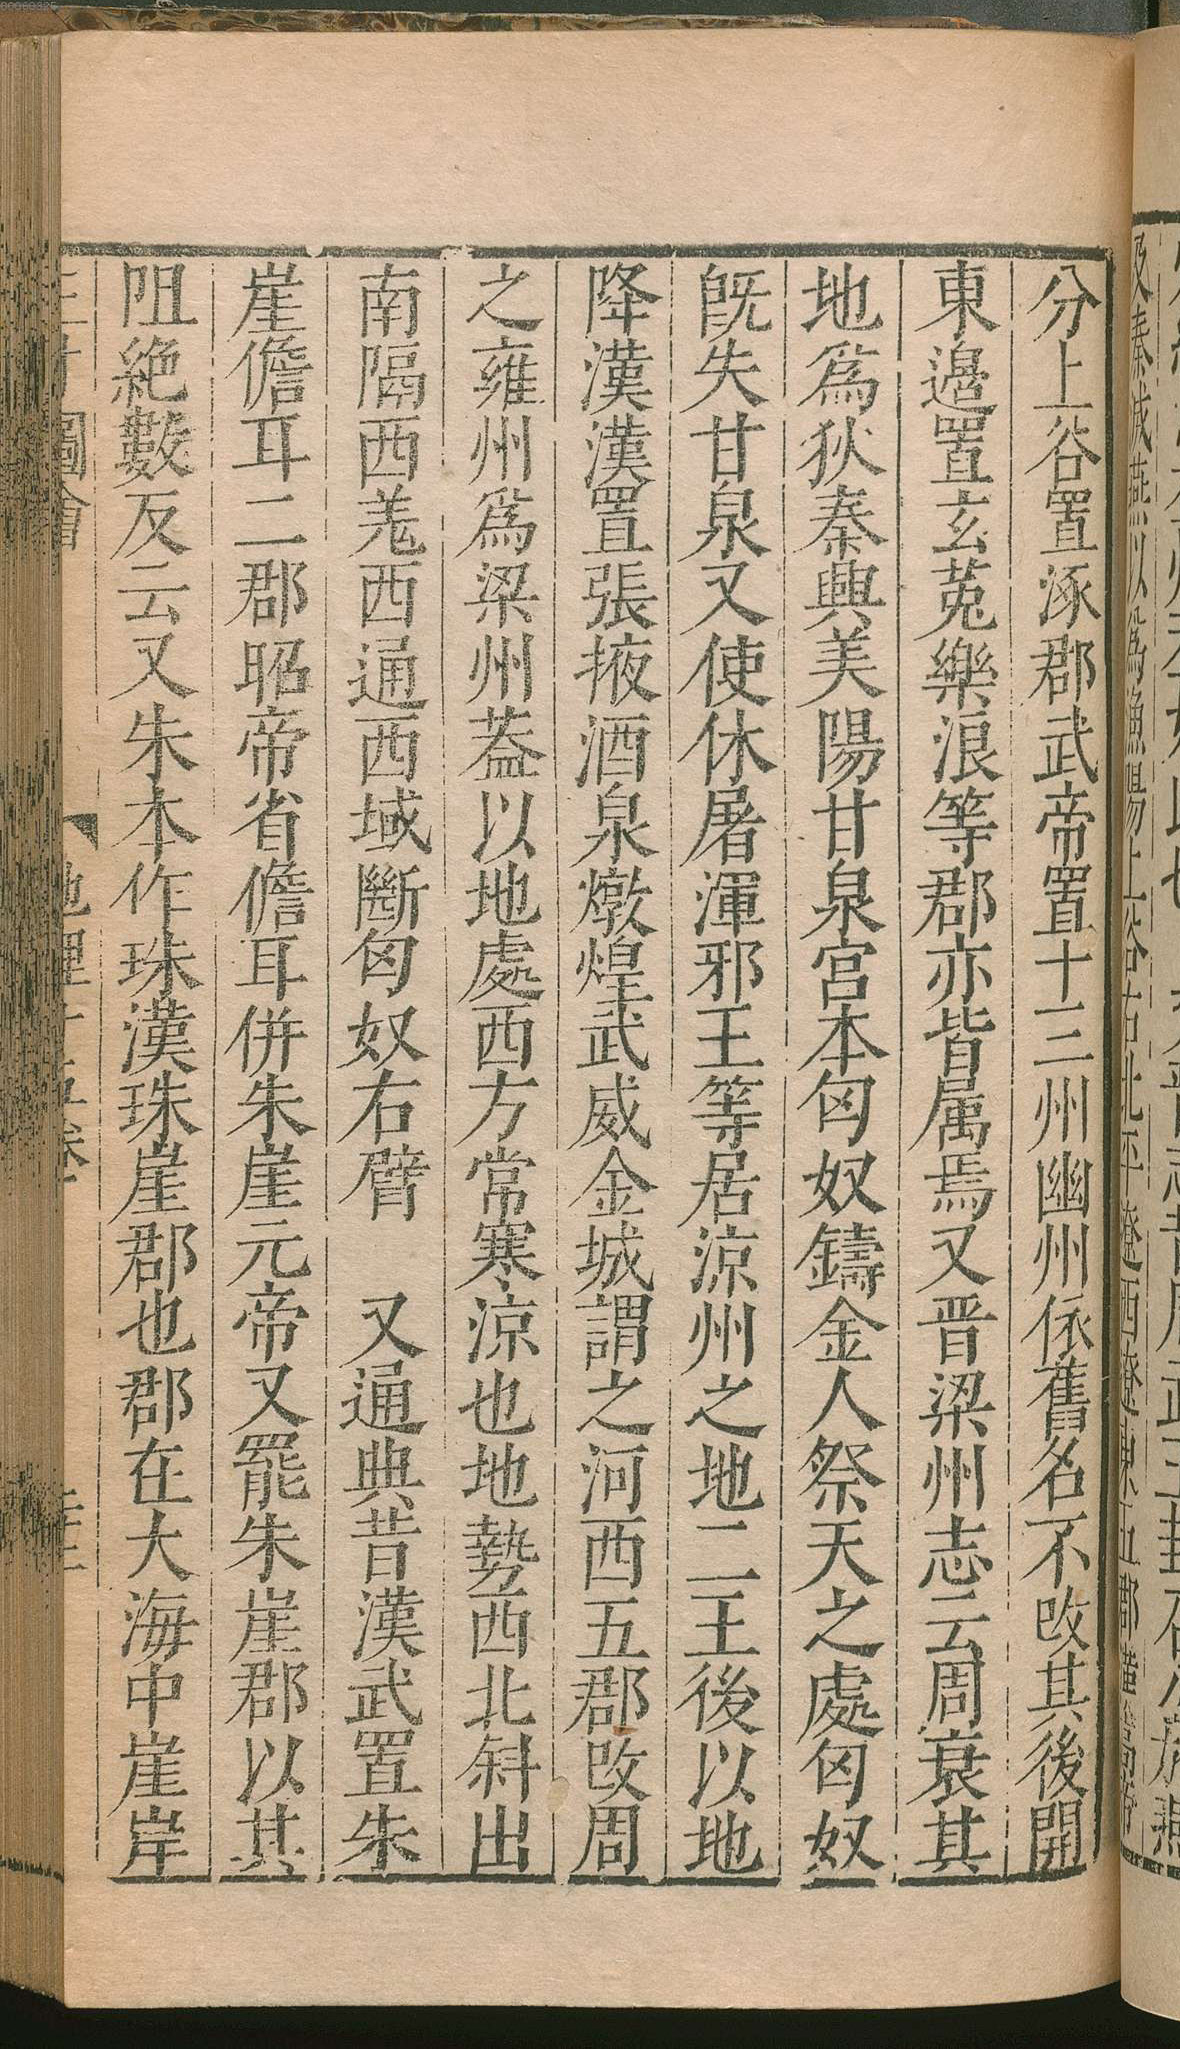 分上谷置涿郡武帝置十三州幽州依舊名不改其後開
東邊置玄菟樂浪等郡亦皆属焉又晋梁州志云周衰其
地爲狄秦興美陽甘泉宮本匈奴鑄金人祭天之處匈奴
既失甘泉又使休屠渾邪王等居涼州之地二王後以地
降漢漢置張掖酒泉燉煌武威金城謂之河西五郡改周
之雍州爲梁州葢以地處西方常寒涼也地勢西北斜出
南隔西羗西通西域斷匈奴右臂　又通典昔漢武置朱
崖儋耳二郡昭帝省儋耳併朱崖元帝又罷朱崖郡以其
阻絶數反云又朱本作珠漢珠崖郡也郡在大海中崖岸